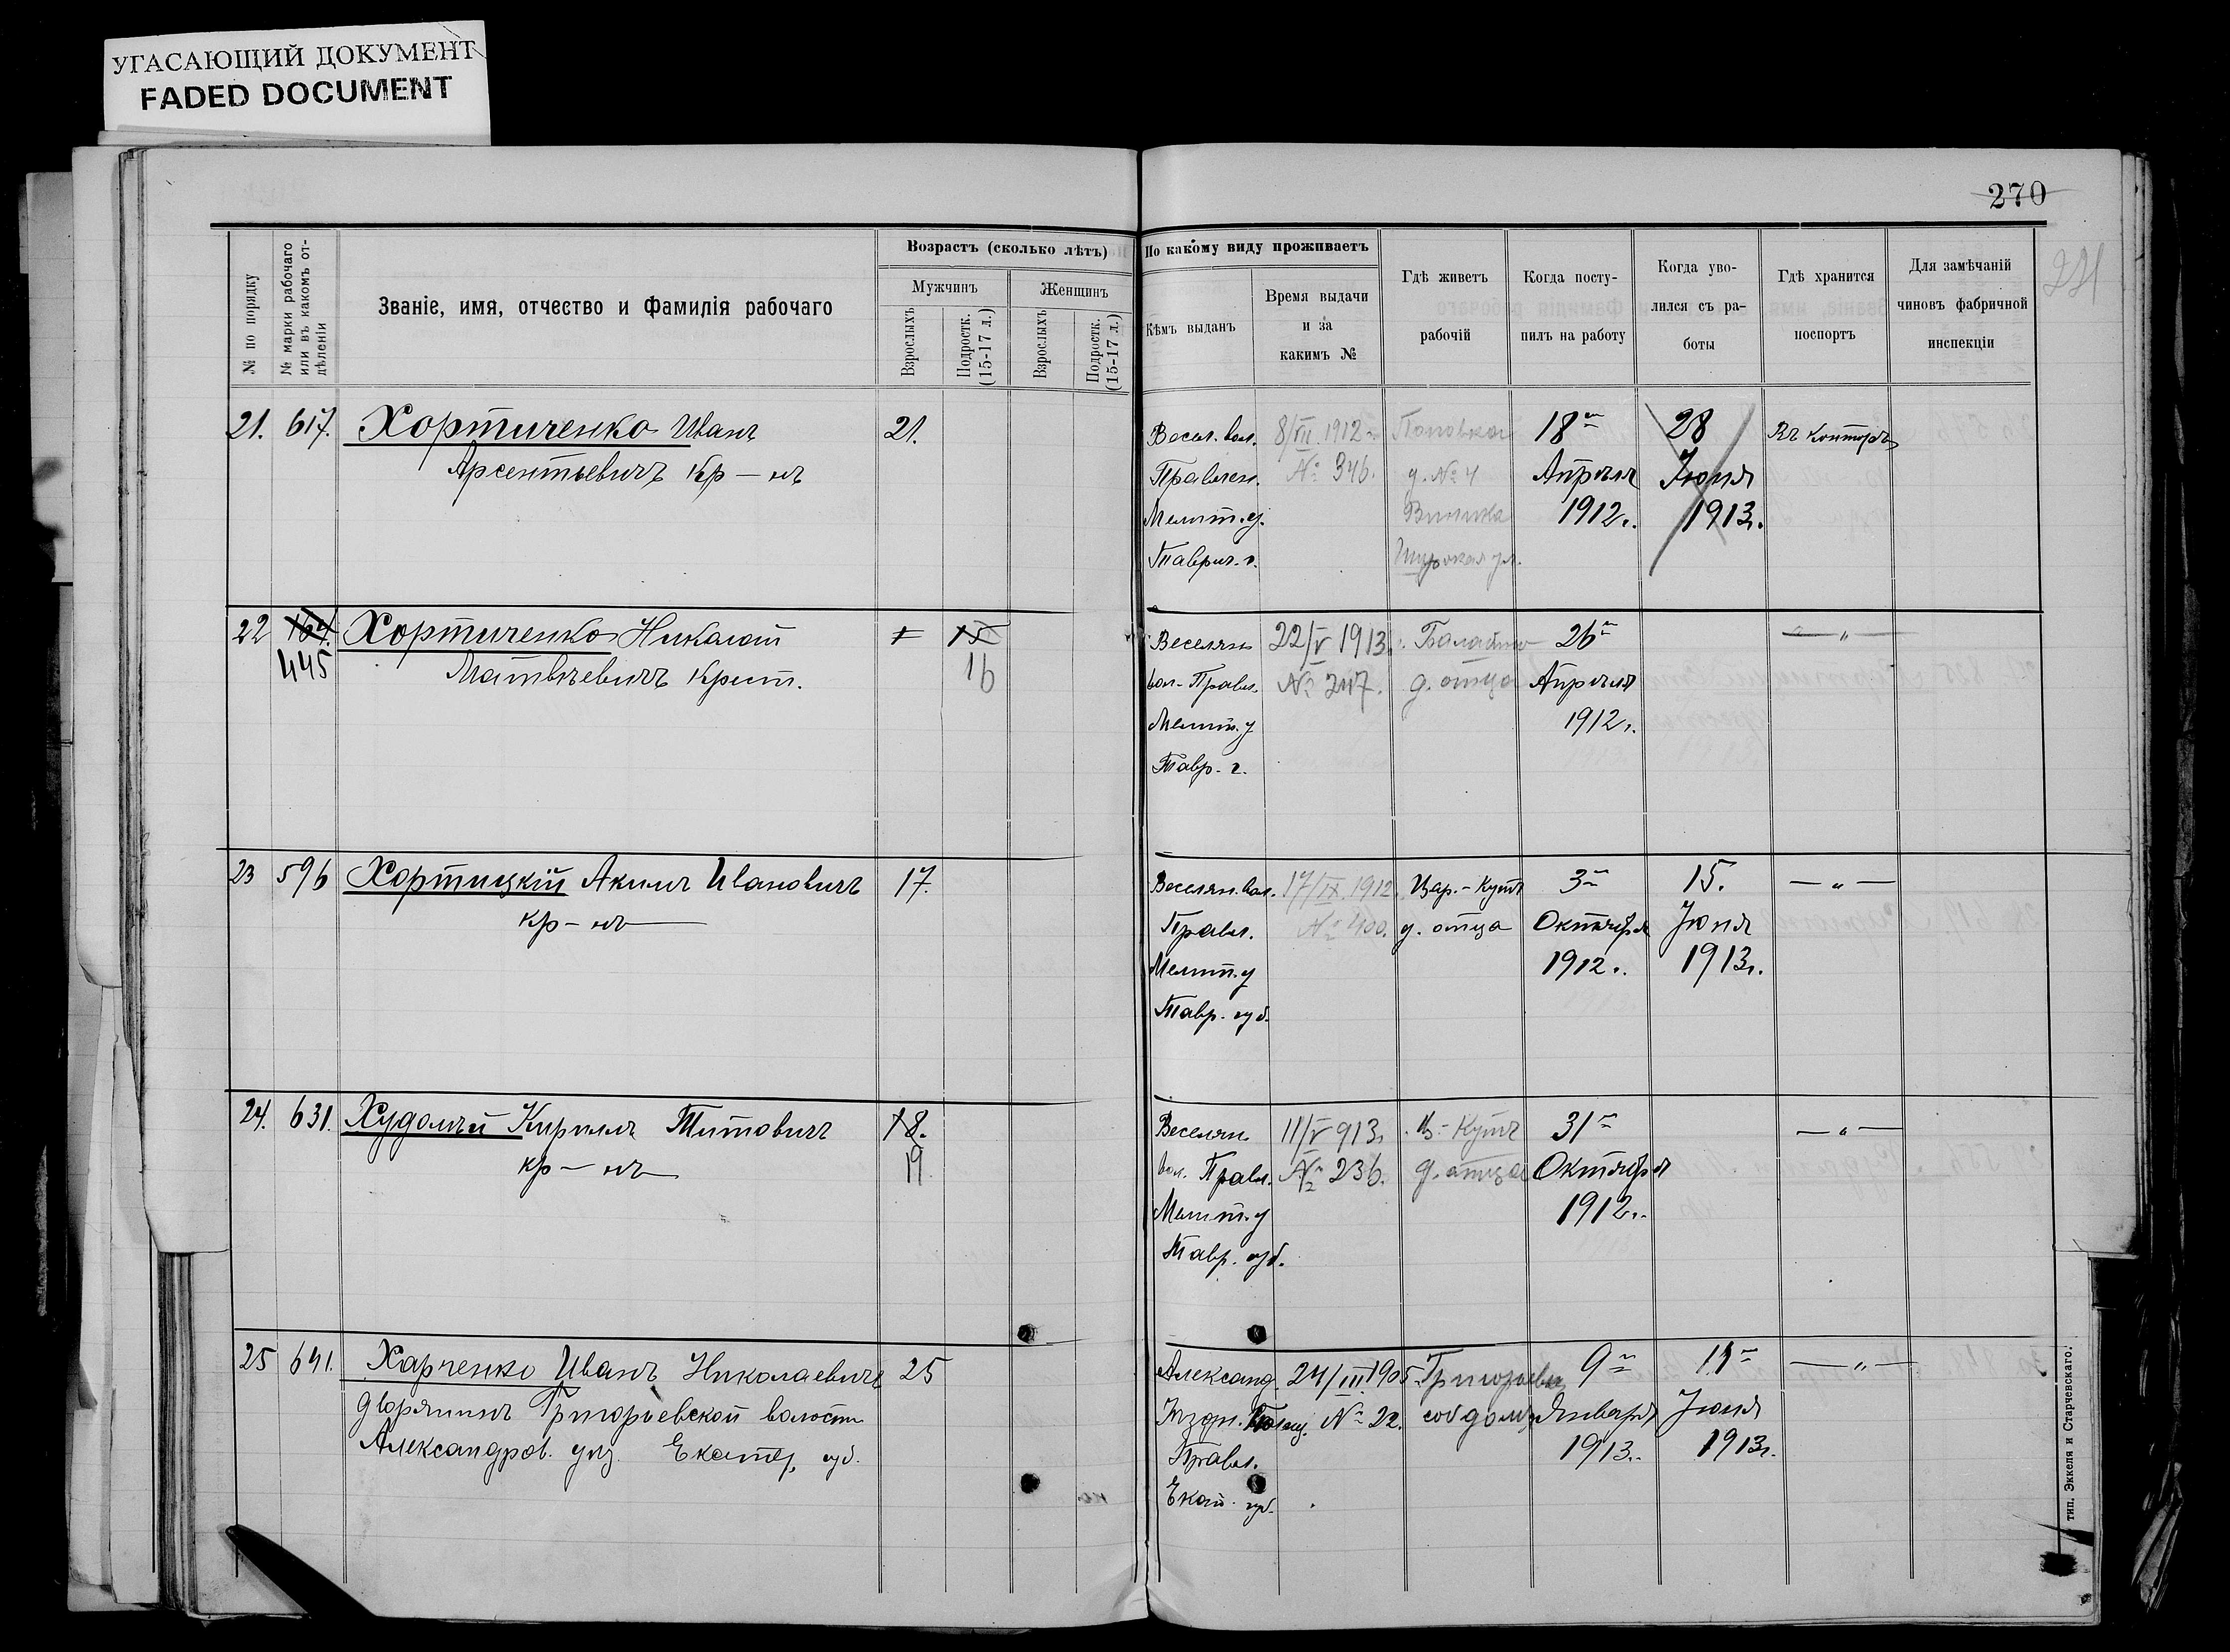 УГАСАЮЩИЙ ДОКУМЕНТ
FADED DOCUMENT
270
221
№ по порядку
№ марки рабочаго или въ какомъ отдѣленіи
Званіе, имя, отчество и Фамилія рабочаго
Возрастъ (сколько лѣтъ)
Мужчинъ
Женщинъ
Взрослыхъ
Подростк. (15-17 л.)
Взрослыхъ
Подростк. (15-17 л.)
По какому виду проживаетъ
Кѣмъ выданъ
Время выдачи
и за
какимъ №
Гдѣ живетъ
рабочій
Когда посту-
пилъ на работу
Когда уво-
лился съ ра-
боты
Гдѣ хранится
поспортъ
Для замѣчаній
чиновъ фабричной
инспекціи
21. 617. Хортиченко Иванъ 21. Весел. вол. 8/VII 1912 г. Поповка 18го 28 Въ конторѣ
Арсентьевичъ Кр-нъ Правлен. № 346. д. № 4 Апрѣля Іюня
Мелит. у. 1912 г. 1913 г.
Таврич. г. Широкая ул.
22 164. Хортиченко Николай 15 Веселян. 22/V 1913 г. 26го — „ —
445 Матвѣевичъ Крест. 16 вол. Правл. № 247. д. отца Апрѣля
Мелит. у 1912 г.
Тавр. г.
23 596 Хортицкій Акимъ Ивановичъ 17. Веселян. вол. 17/IX 1912 г. Цар.-Кутъ 3го 15. — „ —
кр-нъ Правл. № 400. д. отца Октября Іюня
Мелит. у 1912 г. 1913 г.
Тавр. губ.
24. 631. Худолѣй Кириллъ Титовичъ 18. Веселян. 11/V 913 г. Ц.-Кутъ 31го — „ —
кр-нъ 19 вол. Правл. № 236. д. отца Октября
Мелит. у 1912 г.
Тавр. губ.
25 641. Харченко Иванъ Николаевичъ 25 Александ. 24/III 1905 г. 9го 11го — „ —
дворянинъ Григорьевской волости Уѣздн. Полиц. № 22. соб домъ Января Іюня
Александров. уѣз. Екатер. губ. Правл. 1913 г. 1913 г.
Екат. губ.
тип. Эккеля и Старчевскаго.